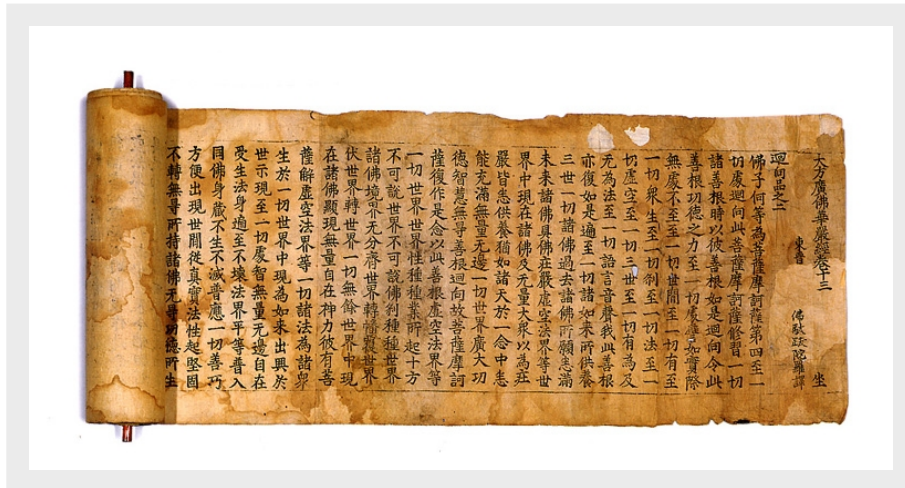 大方廣佛華嚴經卷十三 坐
東晉 佛馱跋陀羅譯
迴向品之二
佛子何等為菩薩摩訶薩第四至一
切處迴向此菩薩摩訶薩修習一切
諸善根時以彼善根如是迴向令此
善根功德之力至一切處譬如實際
無處不至至一切世間至一切有至
一切衆生至一切刹至一切法至一
切虛空至一切三世至一切有為及
无為法至一切語言音聲我此善根
亦復如是遍至一切諸如來所供養
三世一切諸佛過去諸佛所願悉滿
未來諸佛具佛莊嚴虛空法界等世
界中現在諸佛及无量大衆以為莊
嚴皆悉供養猶如諸天於一念中悉
能充滿無量无邊一切世界廣大功
德智慧無㝵善根迴向故菩薩摩訶
薩復作是念以此善根虛空法界等
一切世界世界性種種業所起十方
不可說世界不可說佛刹種種世界
諸佛境界无分齊世界轉世界
伏世界轉世界一切無餘世界中現
在諸佛顯現無量自在神力彼有菩
薩解虛空法界等一切諸法為諸衆
生於一切世界中現為如來出興於
世示現至一切處智無量无邊自在
受生法身遍至不壞法界平等普入
同佛身藏不生不滅普應一切善巧
方便出現世間從真實法性起堅固
不轉無㝵所持諸佛无㝵功德所生